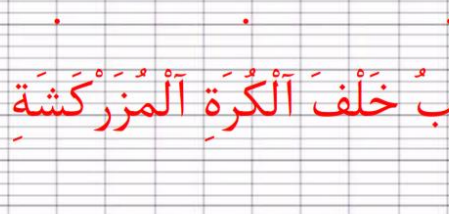 بُ خَلْفَ آلْكُرَةِ آلْمُزَرْكَشَةِ